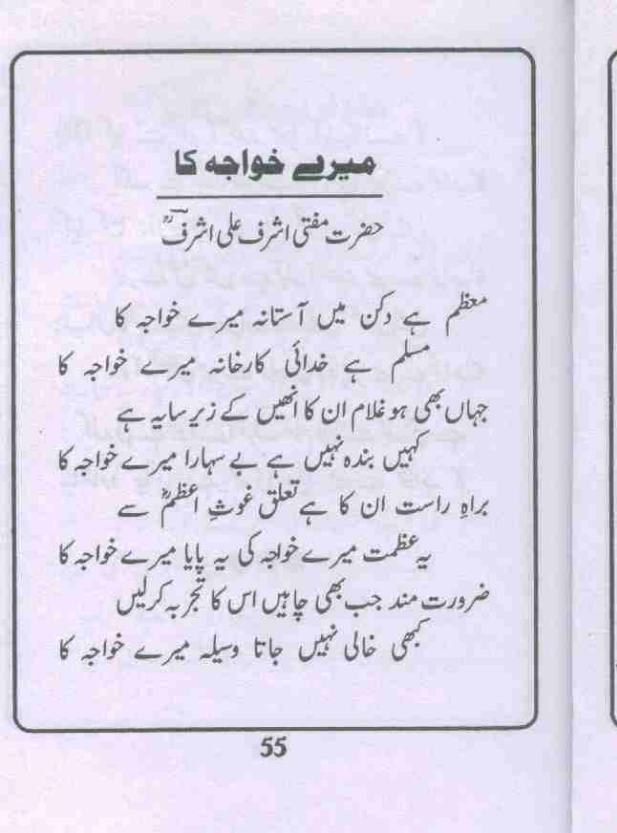 میرے خواجہ کا
حضرت مفتی اشرف علی اشرفؔؒ
معظم ہے دکن میں آستانہ میرے خواجہ کا
مسلم ہے خدائی کارخانہ میرے خواجہ کا
جہاں بھی ہو غلام ان کا انھیں کے زیر سایہ ہے
کہیں بندہ نہیں ہے بے سہارا میرے خواجہ کا
براہِ راست ان کا ہے تعلق غوثِ اعظمؓ سے
یہ عظمت میرے خواجہ کی یہ پایا میرے خواجہ کا
ضرورت مند جب بھی چاہیں اس کا تجربہ کرلیں
کبھی خالی نہیں جاتا وسیلہ میرے خواجہ کا
55